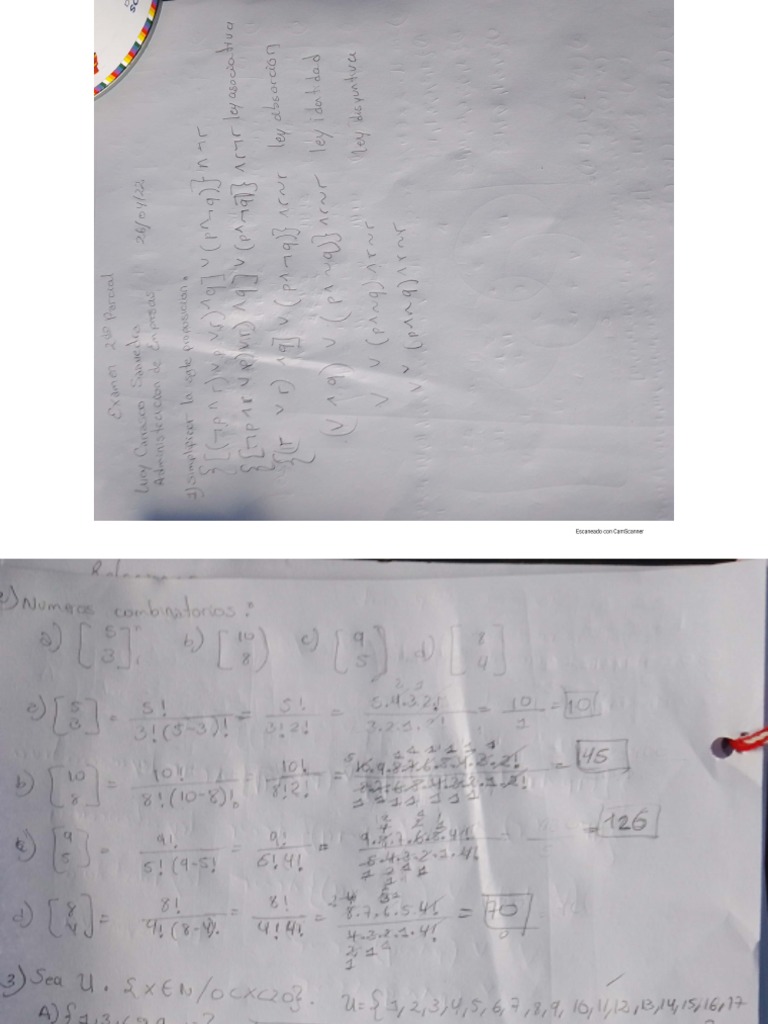 Examen 2do Parcial
Lucy Carrasco Saavedra 26/04/22
Administracion de Empresas
1) Simplificar la sgte proposicion.
{[(¬p ∧ r) ∨ p ∨ r) ∧ q] ∨ (p ∧ ¬q)} ∧ ¬r
{[¬p ∧ r ∨ p) ∨ r) ∧ q] ∨ (p ∧ ¬q)} ∧ r ¬ r ley asociativa
{(r ∨ r) ∧ q] ∨ (p ∧ ¬q)} ∧ r ~ r ley absorcion
(V ∧ q) ∨ (p ∧ ¬q)} ∧ r ~ r ley identidad
V ∨ (p ∧ ~q) ∧ r ~ r ley disyuntiva
V ∨ (p ∧ ~q) ∧ r ~ r
Escaneado con CamScanner
2) Numeros combinatorios:
a) [5 3] b) [10 8) c) [9 5) d) [8 4]
[5 3] = 5!/3!(5-3)! = 5!/3!2! = 5.4.3.2!/3.2.1.2! = 10/1 = 10
b) [10 8] = 10!/8!(10-8)! = 10!/8!2! = 10.9.8.7.6.5.4.3.2!/8.7.6.5.4.3.2.1.2! = 45
[9 5] = 9!/5!(9-5! = 9!/5!4! = 9.8.7.6.5.4!/5.4.3.2.1.4! = 126
d) [8 4] = 8!/4!(8-4). = 8!/4!4! = 8.7.6.5.4!/4.3.2.1.4! = 70
3) Sea U. {x∈N/0<x<20}. U={1,2,3,4,5,6,7,8,9,10,11,12,13,14,15,16,17
A){1,3,